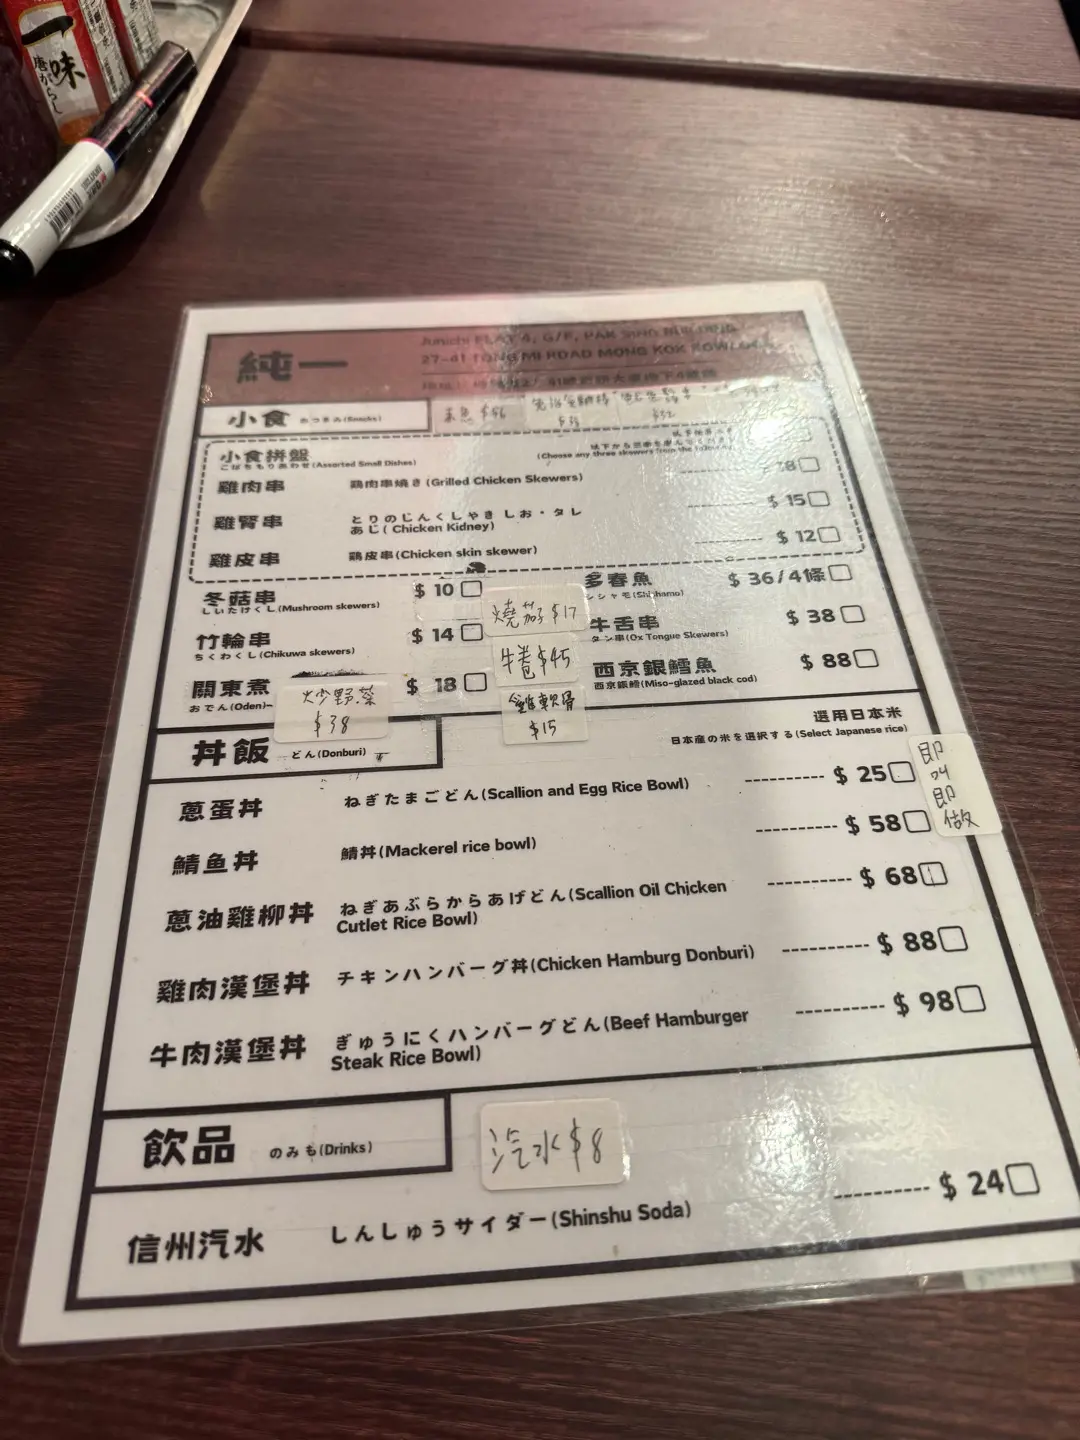 一味
唐がらし
純一
Junichi FLAT 4, G/F, PAK SING BUILDING
27-41 TONG MI ROAD MONG KOK KOWLOON
小食 おつまみ(Snacks)
小食拼盤
こばちもりあわせ(Assorted Small Dishes)
(Choose any three skewers from the
雞肉串 鶏肉串焼き(Grilled Chicken Skewers)
雞腎串 とりのじんくしやき しお・タレ
あじ( Chicken Kidney) $ 15
雞皮串 鶏皮串(Chicken skin skewer) $ 12
冬菇串 $ 10
しいたけくし(Mushroom skewers)
竹輪串 $ 14
ちくわくし(Chikuwa skewers)
關東煮 $ 18
おでん(Oden)
多春魚 $ 36/4條
シシャモ(Shishamo)
牛舌串 $ 38
タン串(Ox Tongue Skewers)
西京銀鱈魚 $ 88
西京銀鱈(Miso-glazed black cod)
燒茄子 $17
牛卷 $45
雞軟骨
$15
炒野菜
$38
丼飯 どん(Donburi)
選用日本米
日本産の米を選択する(Select Japanese rice)
蔥蛋丼 ねぎたまごどん(Scallion and Egg Rice Bowl) $ 25
鯖魚丼 鯖丼(Mackerel rice bowl) $ 58
蔥油雞柳丼 ねぎあぶらからあげどん(Scallion Oil Chicken
Cutlet Rice Bowl) $ 68
雞肉漢堡丼 チキンハンバーグ丼(Chicken Hamburg Donburi) $ 88
牛肉漢堡丼 ぎゅうにくハンバーグどん(Beef Hamburger
Steak Rice Bowl) $ 98
即
叫
即
做
飲品 のみも(Drinks)
汽水 $8
信州汽水 しんしゅうサイダー(Shinshu Soda) $ 24